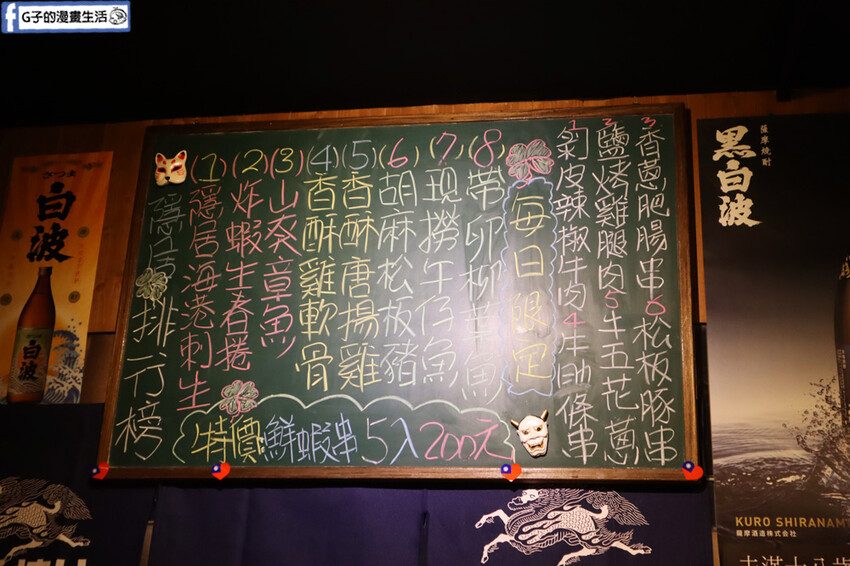 G子的漫畫生活
隱居排行榜
(1)隱居海老刺生
(2)炸蝦生春捲
(3)山葵章魚
(4)香酥雞軟骨
(5)香酥唐揚雞
(6)胡麻松板豬
(7)現撈午仔魚
(8)帶卵柳葉魚
每日限定
1剝皮辣椒牛肉 4.牛肋條串
2鹽烤雞腿肉 5牛五花蔥
3香蔥肥腸串 6松板豚串
特價:鮮蝦串5入200元
さつま
白波
白波
薩摩焼酎
黒白波
KURO SHIRANAM
薩摩酒造株式会社
未滿十八歲